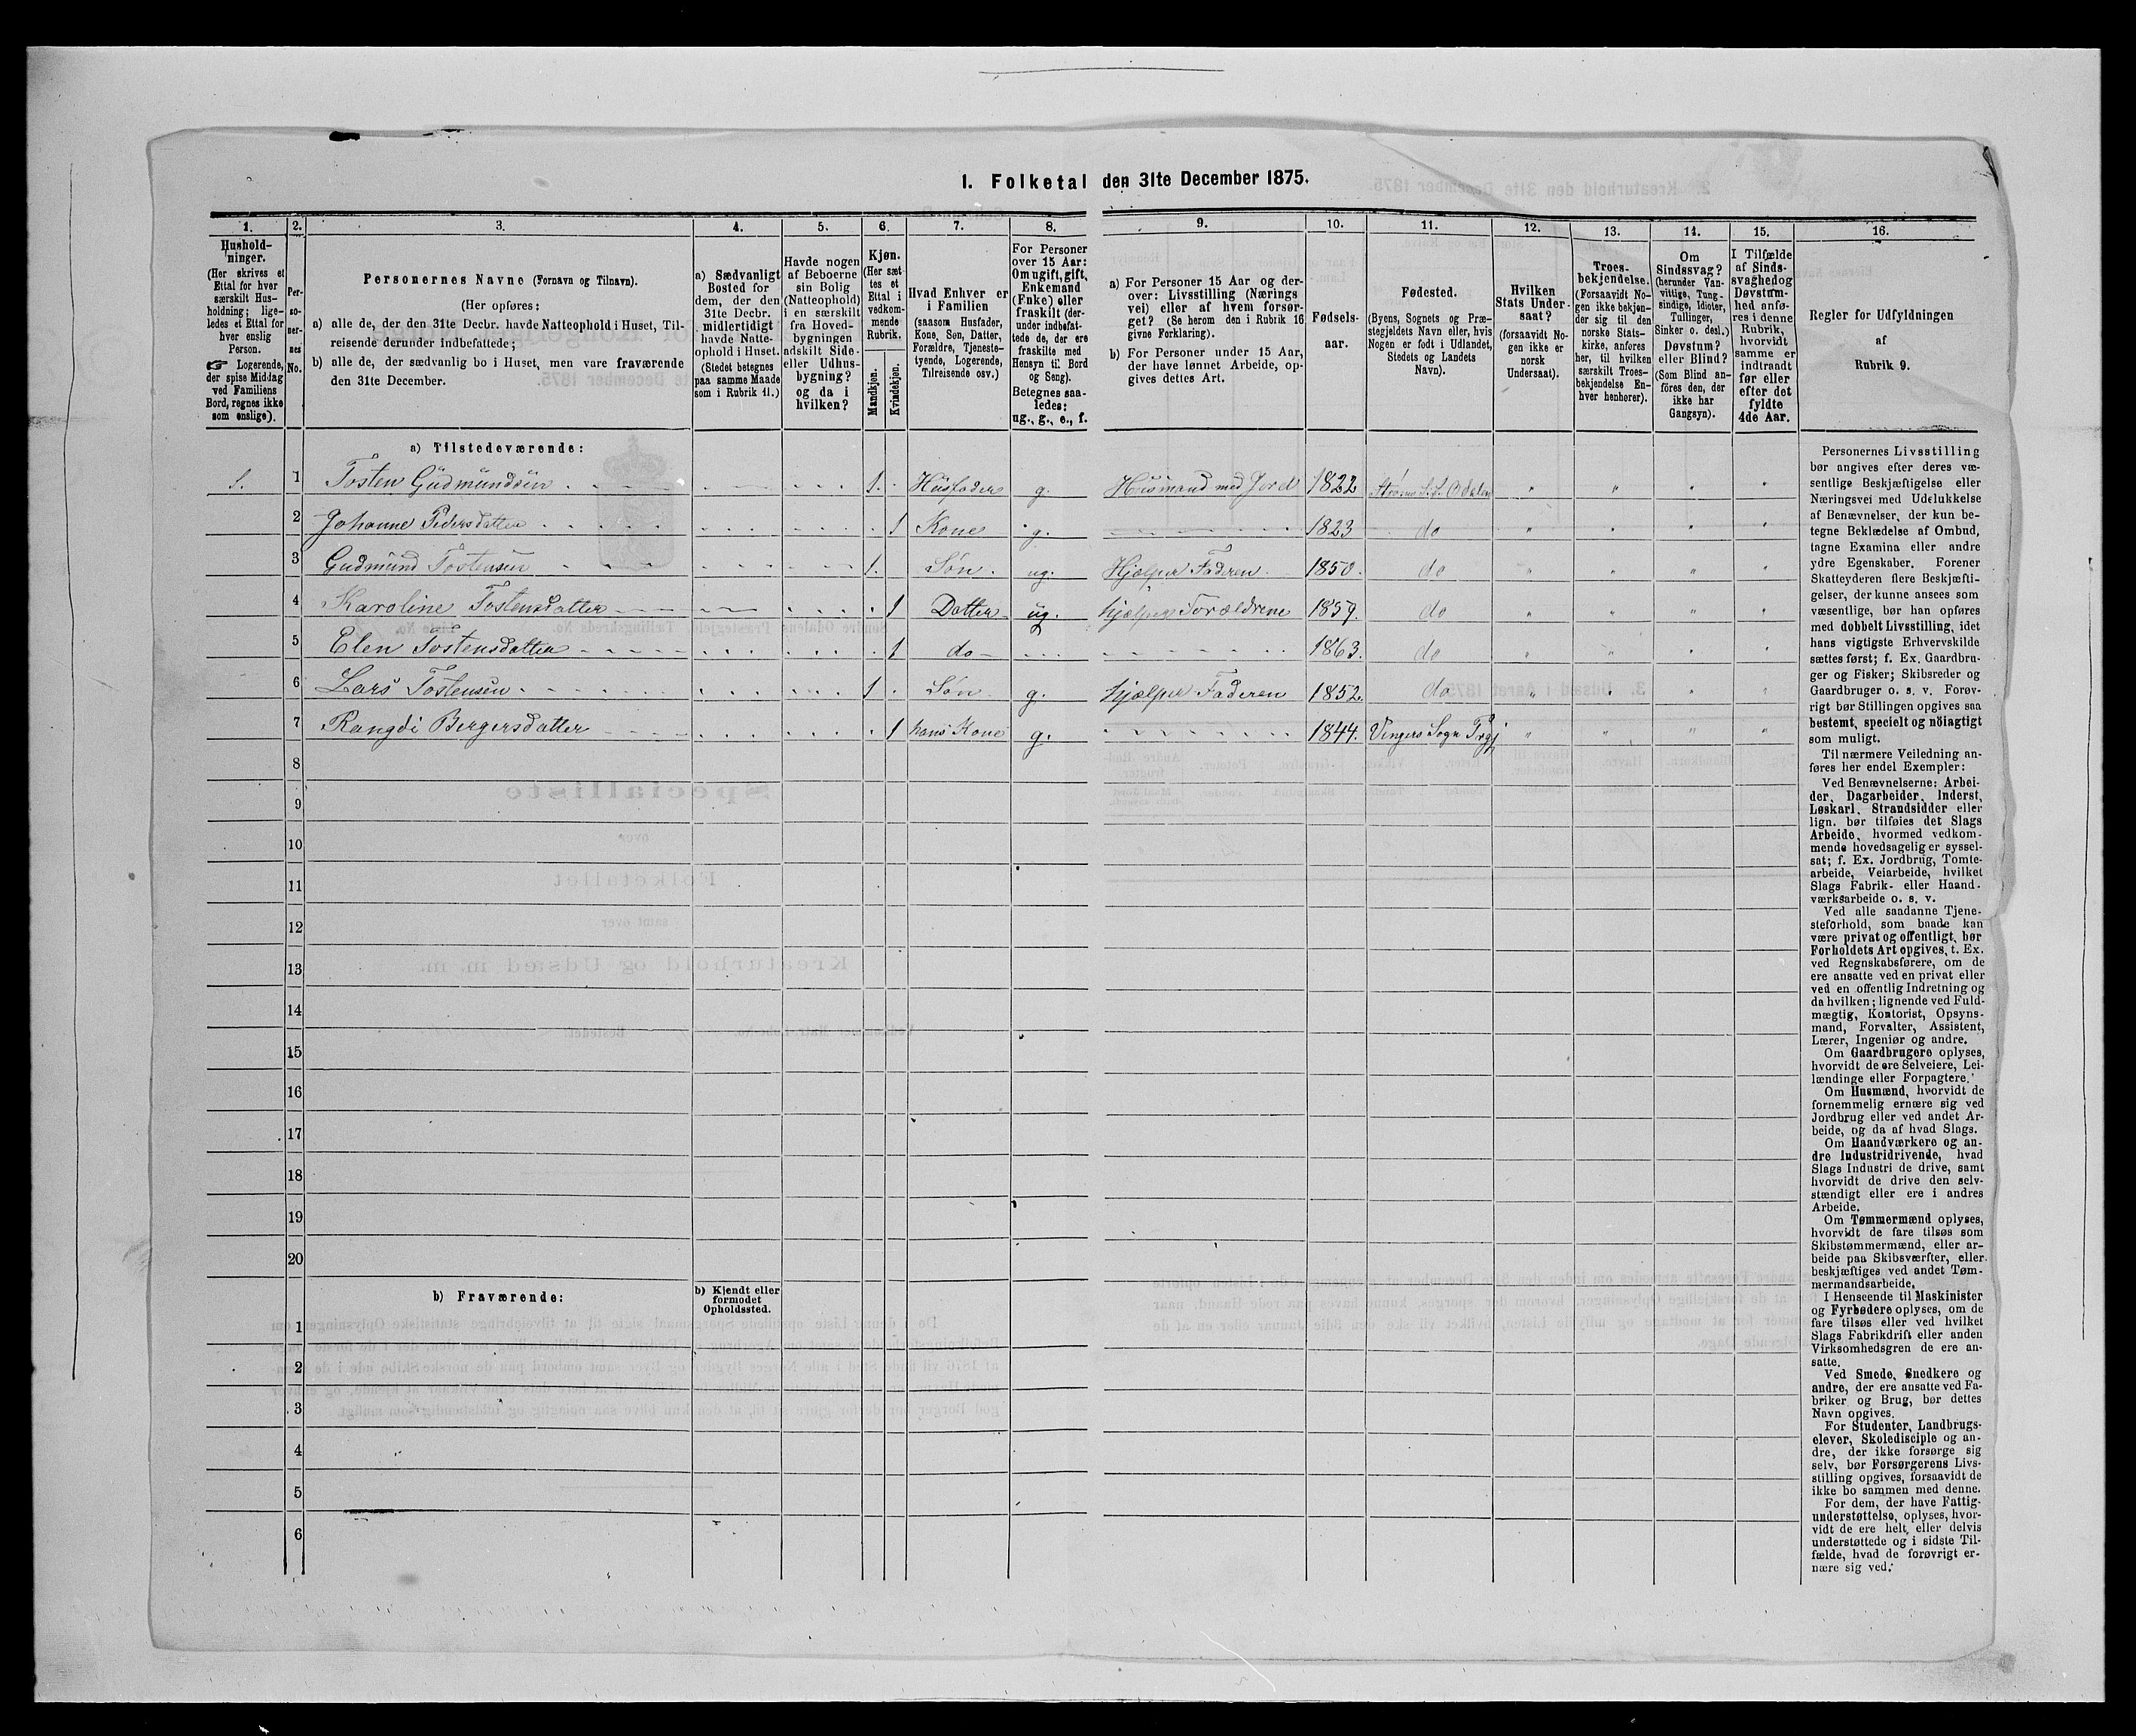 1. Folketal den 31te December 1875.
1. 2. 3. 4. 5. 6. 7. 8. 9. 10. 11. 12. 13. 14. 15. 16.
Hushold-
ninger.
(Her skrives et
Ettal for hver
særskilt Hus-
holdning; lige-
ledes et Ettal for
hver enslig
Person.
☞ Logerende,
der spise Middag
ved Familiens
Bord, regnes ikke
som enslige).
Per-
so-
ner-
nes
No.
Personernes Navne (Fornavn og Tilnavn).
(Her opføres:
a) alle de, der den 31te Decbr. havde Natteophold i Huset, Til-
reisende derunder indbefattede;
b) alle de, der sædvanlig bo i Huset, men vare fraværende
den 31te December.
a) Sædvanligt
Bosted for
dem, der den
31te Decbr.
midlertidigt
havde Natte-
ophold i Huset.
(Stedet betegnes
paa samme Maade
som i Rubrik 11.)
Havde nogen
af Beboerne
sin Bolig
(Natteophold)
i en særskilt
fra Hoved-
bygningen
adskilt Side-
eller Udhus-
bygning?
og da i
hvilken?
Kjøn.
(Her sæt-
tes et
Ettal i
vedkom-
mende
Rubrik.
Mandkjøn.
Kvindekjøn.
Hvad Enhver er
i Familien
(saasom Husfader,
Kone, Søn, Datter,
Forældre, Tjeneste-
tyende, Logerende,
Tilreisende osv.)
For Personer
over 15 Aar:
Om ugift, gift,
Enkemand
(Enke) eller
fraskilt (der-
under indbefat-
tede de, der ere
fraskilte med
Hensyn til Bord
og Seng).
Betegnes saa-
ledes:
ug., g., e., f.
a) For Personer 15 Aar og der-
over: Livsstilling (Nærings
vei) eller af hvem forsør-
get? (Se herom den i Rubrik 16
givne Forklaring).
b) For Personer under 15 Aar,
der have lønnet Arbeide, op-
gives dettes Art.
Fødsels-
aar.
Fødested.
(Byens, Sognets og Præ-
stegjeldets Navn eller, hvis
Nogen er født i Udlandet,
Stedets og Landets
Navn).
Hvilken
Stats Under-
saat?
(forsaavidt No-
gen ikke er
norsk
Undersaat).
Troes-
bekjendelse.
(Forsaavidt No-
gen ikke bekjen-
der sig til den
norske Stats-
kirke, anføres
her, til hvilken
særskilt Troes-
bekjendelse En-
hver henhører).
Om
Sindssvag?
(herunder Van-
vittige, Tung-
sindige, Idioter,
Tullinger,
Sinker o. desl.)
Døvstum?
eller Blind?
(Som Blind an-
føres den, der
ikke har
Gangsyn).
I Tilfælde
af Sinds-
svaghed og
Døvstum-
hed anfø-
res i denne
Rubrik,
hvorvidt
samme er
indtraadt
før eller
efter det
fyldte
4de Aar.
Regler for Udfyldningen
af
Rubrik 9.
a) Tilstedeværende:
1. 1 Tosten Gudmundsen 1. Husfader g. Husmand med Jord 1822 Strøms S. S. Odalen
2 Johanne Pedersdatter 1 Kone g. 1823 do
3 Gudmund Tostensen 1. Søn. ug. Hjælper Faderen. 1850. do
4 Karoline Tostensdatter 1 Datter ug. hjælper Forældrene 1859. do
5 Elen Tostensdatter 1 do 1863. do
6 Lars Tostensen 1 Søn g. hjælper Faderen 1852. do
7 Rangdi Bergersdatter 1 hans Kone g. 1844. Vingers Sogn Prgj
8
9
10
11
12
13
14
15
16
17
18
19
20
b) Fraværende:
b) Kjendt eller
formodet
Opholdssted.
1
2
3
4
5
6
Personernes Livsstilling
bør angives efter deres væ-
sentlige Beskjæftigelse eller
Næringsvei med Udelukkelse
af Benævnelser, der kun be-
tegne Beklædelse af Ombud,
tagne Examina eller andre
ydre Egenskaber. Forener
Skatteyderen flere Beskjæfti-
gelser, der kunne ansees som
væsentlige, bør han opføres
med dobbelt Livsstilling, idet
hans vigtigste Erhvervskilde
sættes først; f. Ex. Gaardbru-
ger og Fisker; Skibsreder og
Gaardbruger o. s. v. Forøv-
rigt bør Stillingen opgives saa
bestemt, specielt og nöiagtigt
som muligt.
Til nærmere Veiledning an-
føres her endel Exempler:
Ved Benævnelserne: Arbei-
der, Dagarbeider, Inderst,
Løskarl, Strandsidder eller
lign. bør tilføies det Slags
Arbeide, hvormed vedkom-
mende hovedsagelig er syssel-
sat; f. Ex. Jordbrug, Tomte-
arbeide, Veiarbeide, hvilket
Slags Fabrik- eller Haand-
værksarbeide o. s. v.
Ved alle saadanne Tjene-
steforhold, som baade kan
være privat og offentligt, bør
Forholdets Art opgives, t. Ex.
ved Regnskabsførere, om de
ere ansatte ved en privat eller
ved en offentlig Indretning og
da hvilken; lignende ved Fuld-
mægtig, Kontorist, Opsyns-
mand, Forvalter, Assistent,
Lærer, Ingeniør og andre.
Om Gaardbrugere oplyses,
hvorvidt de ere Selveiere, Lei-
lændinge eller Forpagtere.
Om Husmænd, hvorvidt de
fornemmelig ernære sig ved
Jordbrug eller ved andet Ar-
beide, og da af hvad Slags.
Om Haandværkere og an-
dre Industridrivende, hvad
Slags Industri de drive, samt
hvorvidt de drive den selv-
stændigt eller ere i andres
Arbeide.
Om Tømmermænd oplyses,
hvorvidt de fare tilsøs som
Skibstømmermænd, eller ar-
beide paa Skibsværfter, eller
beskjæftiges ved andet Tøm-
mermandsarbeide.
I Henseende til Maskinister
og Fyrbødere oplyses, om de
fare tilsøs eller ved hvilket
Slags Fabrikdrift eller anden
Virksomhedsgren de ere an-
satte.
Ved Smede, Snedkere og
andre, der ere ansatte ved Fa-
briker og Brug, bør dettes
Navn opgives.
For Studenter, Landbrugs-
elever, Skoledisciple og an-
dre, der ikke forsørge sig
selv, bør Forsørgerens Livs-
stilling opgives, forsaavidt de
ikke bo sammen med denne.
For dem, der have Fattig-
understøttelse, oplyses, hvor-
vidt de ere helt, eller delvis
understøttede og i sidste Til-
fælde, hvad de forøvrigt er-
nære sig ved.